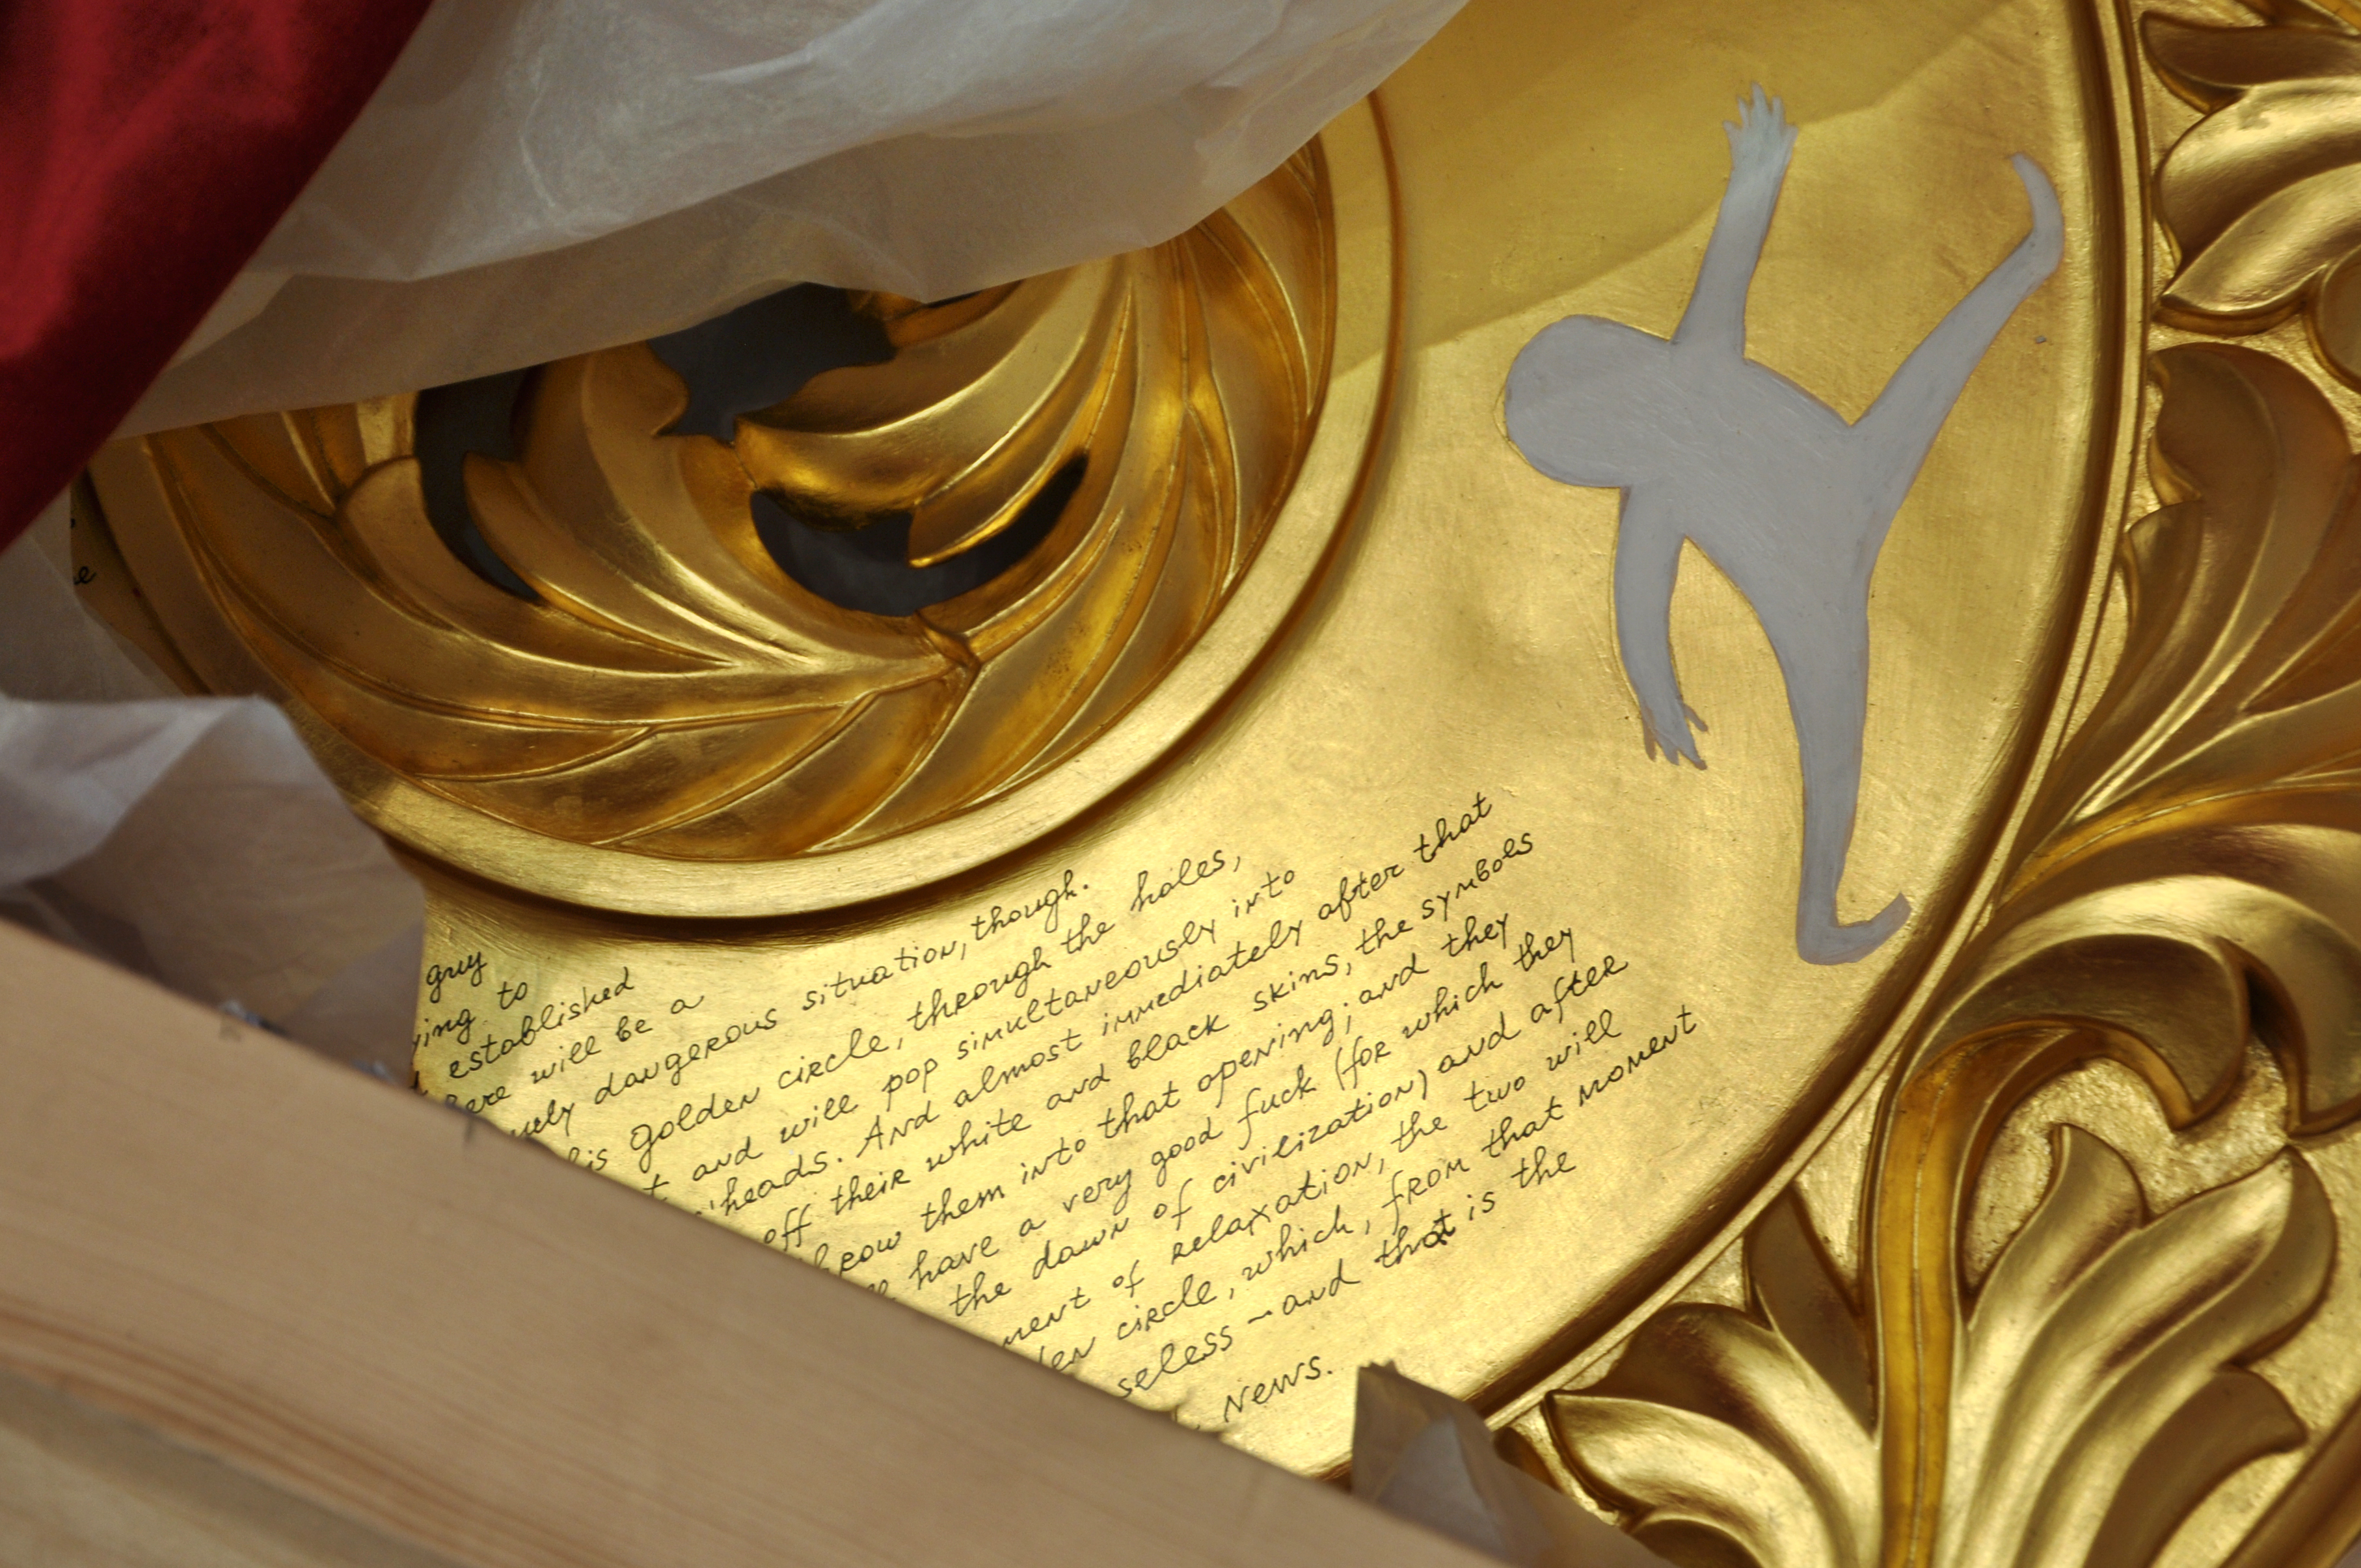 e
guy
ing to
established
ere will be a
dangerous situation, though.
is golden circle, through the holes,
t and will pop simultaneously into
heads. And almost immediately after that
off their white and black skins, the symbols
hrow them into that opening; and they
have a very good fuck (for which they
the dawn of civilization) and after
ment of relaxation, the two will
en circle, which, from that moment
seless – and that is the
news.